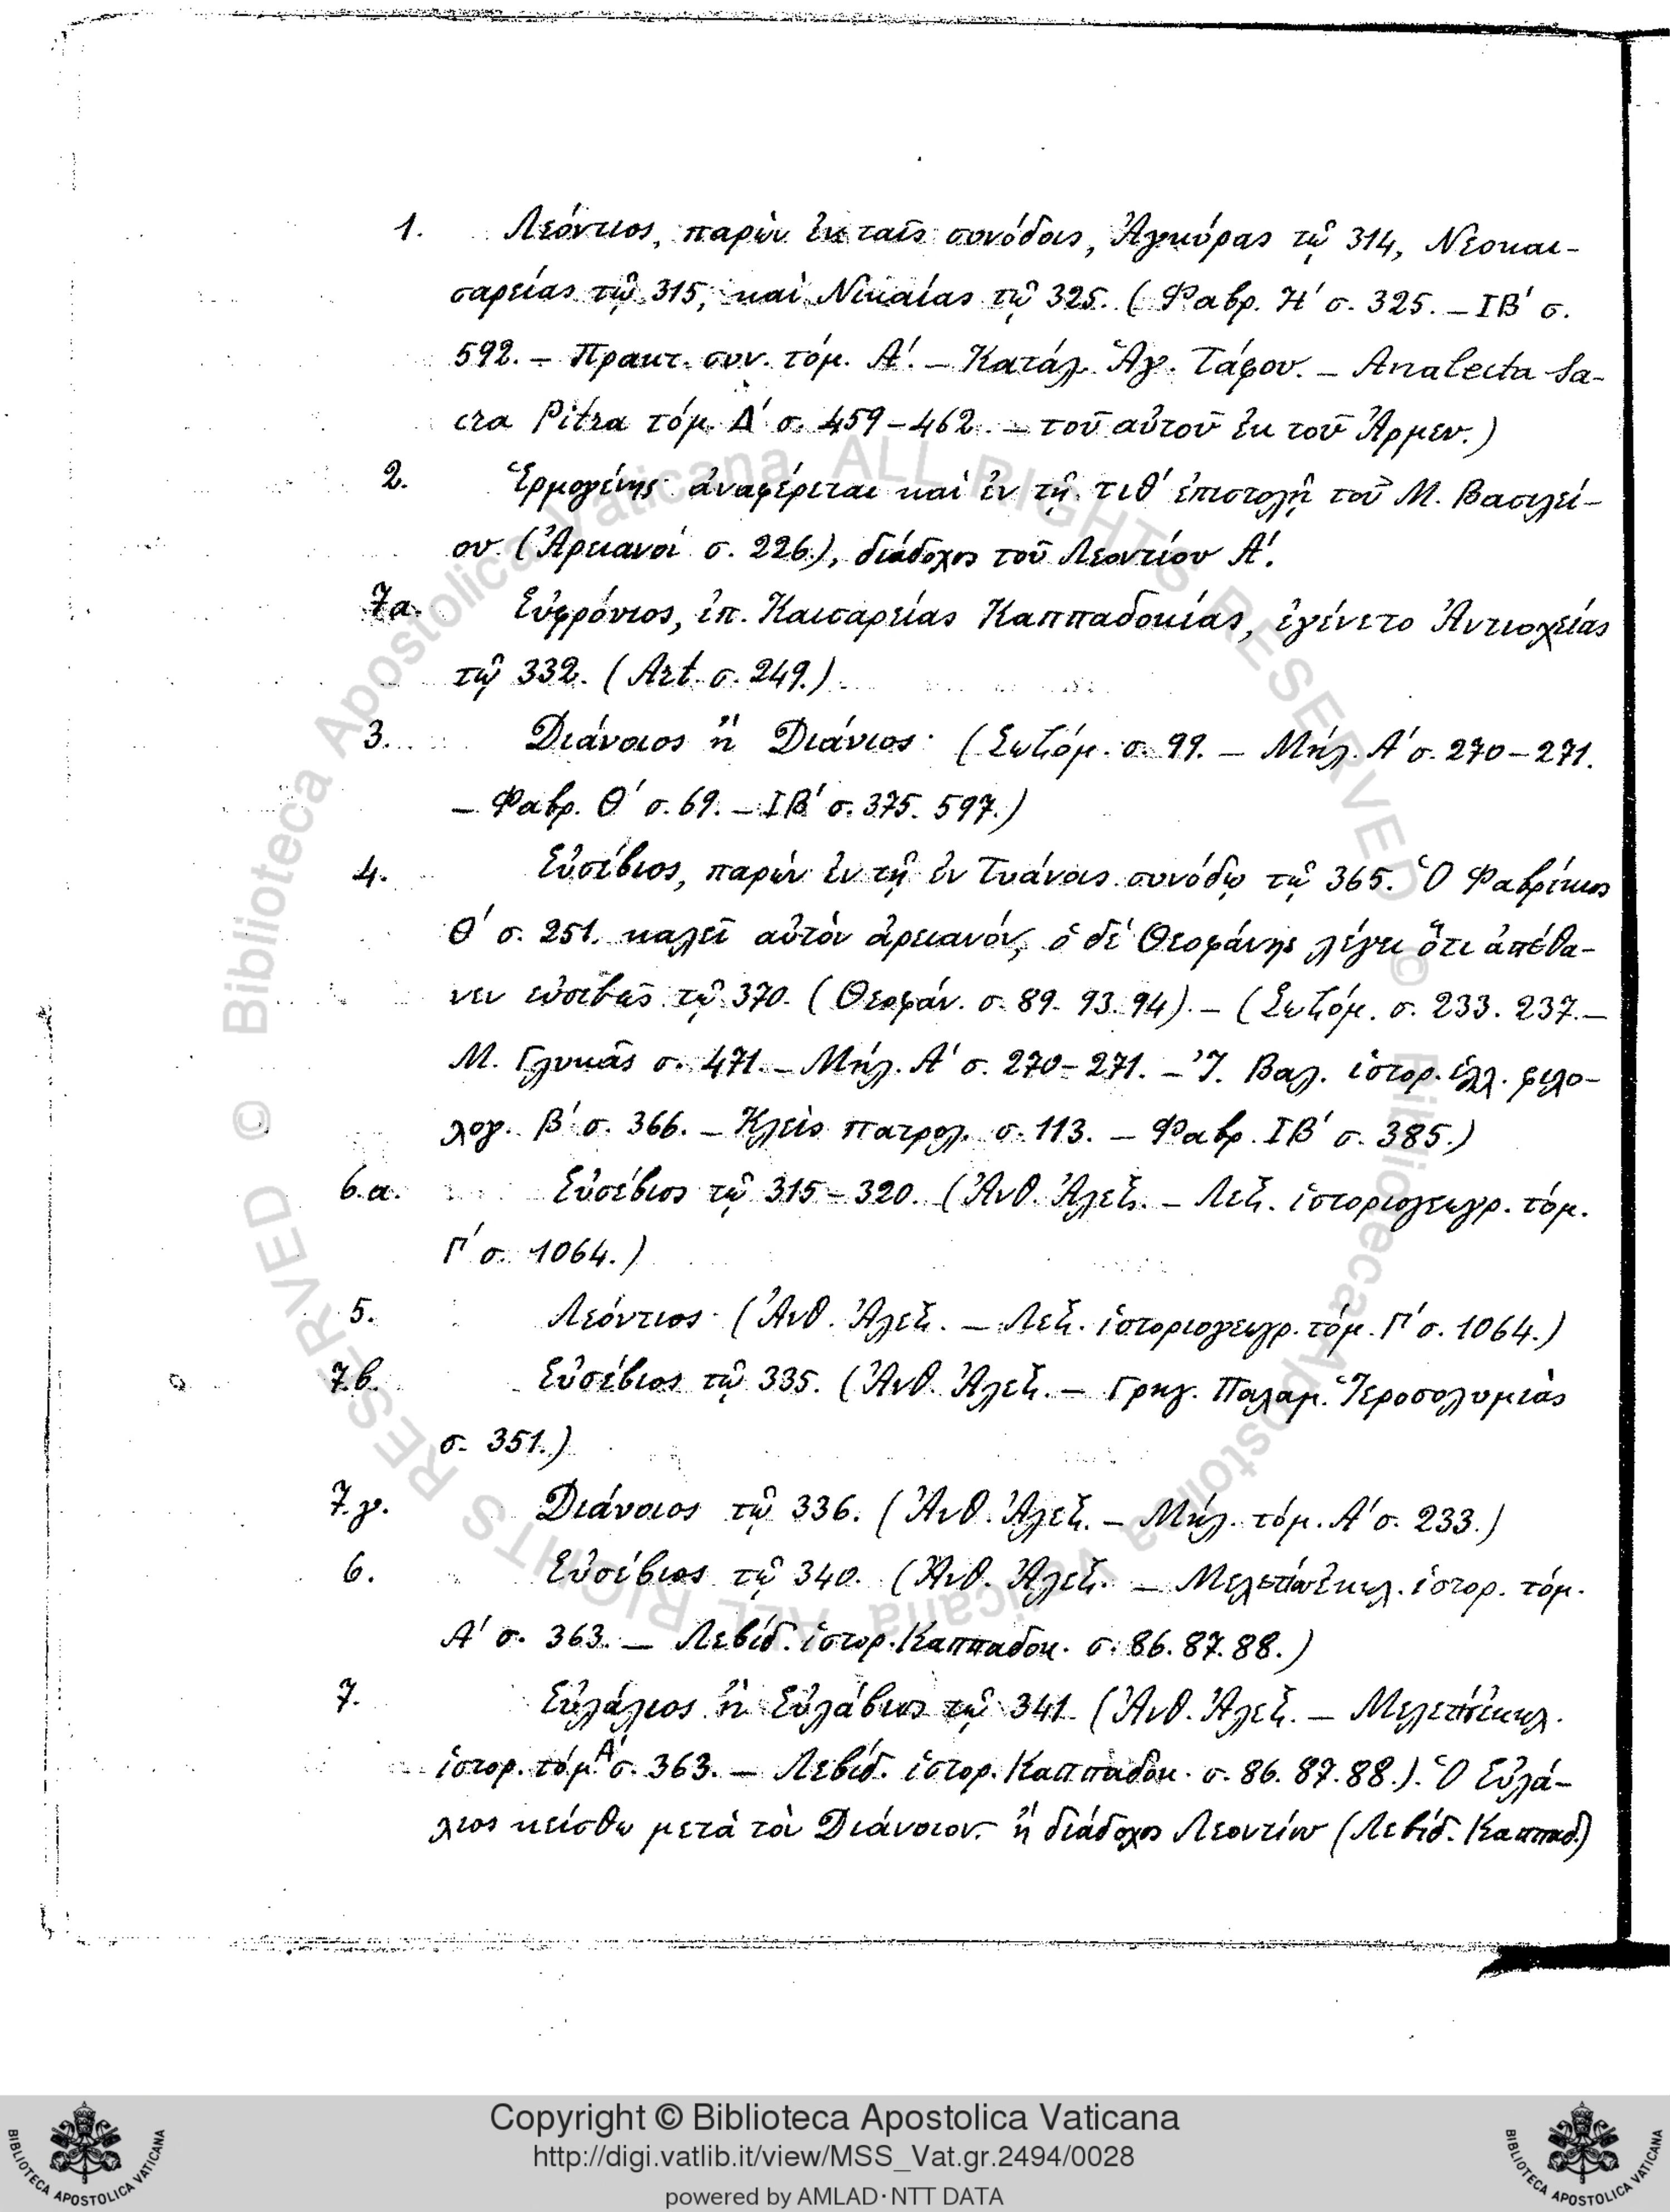 1. Λεόντιος, παρὼν ἐν ταῖς συνόδοις, Ἀγκύρας τῷ 314, Νεοκαι-
σαρείας τῷ 315, καὶ Νικαίας τῷ 325. (Φαβρ. Η' σ. 325. – ΙΒ' σ.
592. – Πρακτ. συν. τόμ. Α'. – Κατάλ. Ἁγ. Τάφου. – Analecta Sa-
cra Pitra τόμ. Δ' σ. 459–462. – τοῦ αὐτοῦ ἐκ τοῦ Ἀρμεν.)
2. Ἑρμογένης ἀναφέρεται καὶ ἐν τῇ τιθ' ἐπιστολῇ τοῦ Μ. Βασιλεί-
ου. (Ἀρειανοί σ. 226.), διάδοχος τοῦ Λεοντίου Α'.
7α. Εὐφρόνιος, ἐπ. Καισαρείας Καππαδοκίας, ἐγένετο Ἀντιοχείας
τῷ 332. (Art. σ. 249.)
3. Διάνοιος ἢ Διάνιος (Σωζόμ. σ. 99. – Μήλ. Α' σ. 270–271.
– Φαβρ. Θ' σ. 69. – ΙΒ' σ. 375. 597.)
4. Εὐσέβιος, παρὼν ἐν τῇ ἐν Τυάνοις συνόδῳ τῷ 365. Ὁ Φαβρίκιος
Θ' σ. 251. καλεῖ αὐτὸν ἀρειανόν, ὁ δὲ Θεοφάνης λέγει ὅτι ἀπέθα-
νεν εὐσεβῶς τῷ 370. (Θεοφάν. σ. 89. 93. 94). – (Σωζόμ. σ. 233. 237. –
Μ. Γλυκᾶς σ. 471. – Μήλ. Α' σ. 270–271. – Ἰ. Βαλ. ἱστορ. ἑλλ. φιλο-
λογ. β' σ. 366. – Κλεὶς πατρολ. σ. 113. – Φαβρ. ΙΒ' σ. 385.)
6.α. Εὐσέβιος τῷ 315–320. (Ἀνθ. Ἀλεξ. – Λεξ. ἱστοριογεωγρ. τόμ.
Γ' σ. 1064.)
5. Λεόντιος (Ἀνθ. Ἀλεξ. – Λεξ. ἱστοριογεωγρ. τόμ. Γ' σ. 1064.)
7.β. Εὐσέβιος τῷ 335. (Ἀνθ. Ἀλεξ. – Γρηγ. Παλαμ. Ἱεροσολυμιὰς
σ. 351.)
7.γ. Διάνοιος τῷ 336. (Ἀνθ. Ἀλεξ. – Μήλ. τόμ. Α' σ. 233.)
6. Εὐσέβιος τῷ 340. (Ἀνθ. Ἀλεξ. – ἐκκλ. ἱστορ. τόμ.
Α' σ. 363. – Λεβίδ. ἱστορ. Καππαδοκ. σ. 86. 87. 88.)
7. Εὐλάλιος ἢ Εὐλάβιος τῷ 341. (Ἀνθ. Ἀλεξ. – ἐκκλ.
ἱστορ. τόμ. Α' σ. 363. – Λεβίδ. ἱστορ. Καππαδοκ. σ. 86. 87. 88.). Ὁ Εὐλά-
λιος κείσθω μετὰ τὸν Διάνοιον. ἢ διάδοχος Λεοντίου (Λεβίδ. Καππαδ.)
© Biblioteca Apostolica Vaticana ALL RIGHTS RESERVED © Biblioteca Apostolica Vaticana ALL RIGHTS RESERVED
Copyright © Biblioteca Apostolica Vaticana
http://digi.vatlib.it/view/MSS_Vat.gr.2494/0028
powered by AMLAD·NTT DATA
BIBLIOTECA APOSTOLICA VATICANA
BIBLIOTECA APOSTOLICA VATICANA